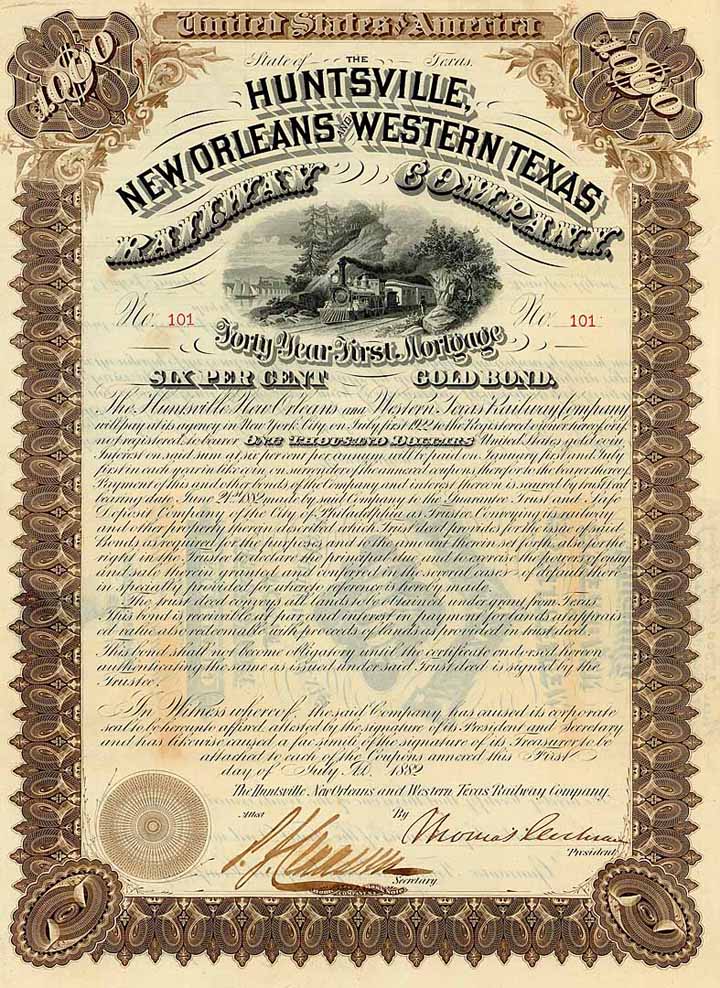 United States of America
$1000
$1000
State of Texas.
THE
HUNTSVILLE,
NEW ORLEANS AND WESTERN TEXAS
RAILWAY COMPANY.
No. 101
No. 101
Forty Year First Mortgage
SIX PER CENT GOLD BOND.
The Huntsville New Orleans and Western Texas Railway Company
will pay at its agency in New York City, on July first 1922 to the Registered owner hereof or if
not registered, to bearer ONE THOUSAND DOLLARS United States gold coin
Interest on said sum at six per cent per annum payable on January first and July
first in each year in like coin, on surrender of the annexed coupons therefor to the bearer thereof
Payment of this and other bonds of the Company and interest thereon is secured by trust Deed
bearing date June 21st 1882 made by said Company to the Guarantee Trust and Safe
Deposit Company of the City of Philadelphia as Trustee. Conveying its railway
and other property therein described which Trust deed provides for the issue of said
Bonds as required for the purposes and to the amount therein set forth, also for the
right in the Trustee to declare the principal due, and to exercise the powers of entry
and sale therein granted and conferred in the several cases of default there
in specially provided for whereto reference is hereby made.
The trust deed conveys all lands to be obtained under grant from Texas.
This bond is receivable at par and interest in payment for lands at apprais
ed value also redeemable with proceeds of lands as provided in trust deed.
This bond shall not become obligatory until the certificate endorsed hereon
authenticating the same as issued under said Trust deed is signed by the
Trustee.
In Witness whereof, the said Company has caused its corporate
seal to be hereunto affixed, attested by the signature of its President and Secretary
and has likewise caused a fac simile of the signature of its Treasurer to be
attached to each of the Coupons annexed this First
day of July A.D. 1882
The Huntsville New Orleans and Western Texas Railway Company.
Attest
By
Thomas
President.
Secretary.